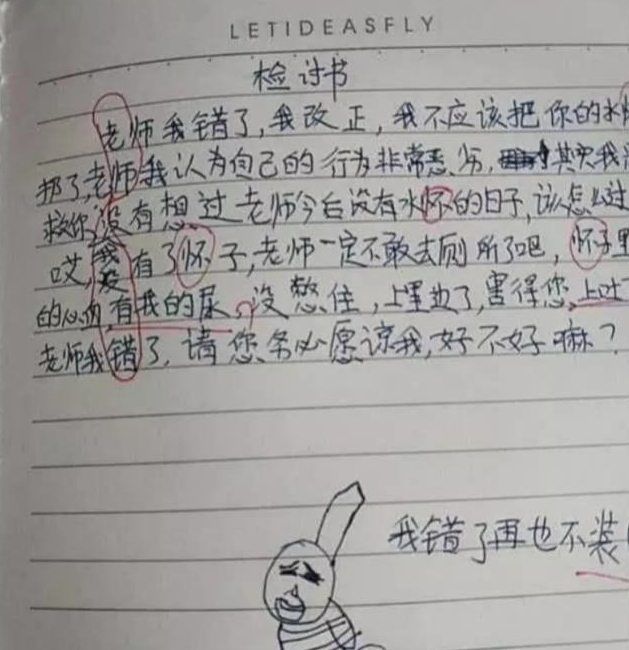 LETIDEASFLY
检讨书
老师我错了,我改正,我不应该把你的水
挪了,老师我认为自己的行为非常恶劣,其实我
救你没有想过老师今后没有水怀的日子,该怎么过
哎,我没有了怀子,老师一定不敢去厕所了吧,怀子里
的心血,有我的尿。没憋住,上里边了,害得您上吐
老师我错了,请您务必愿谅我,好不好嘛?
我错了再也不装